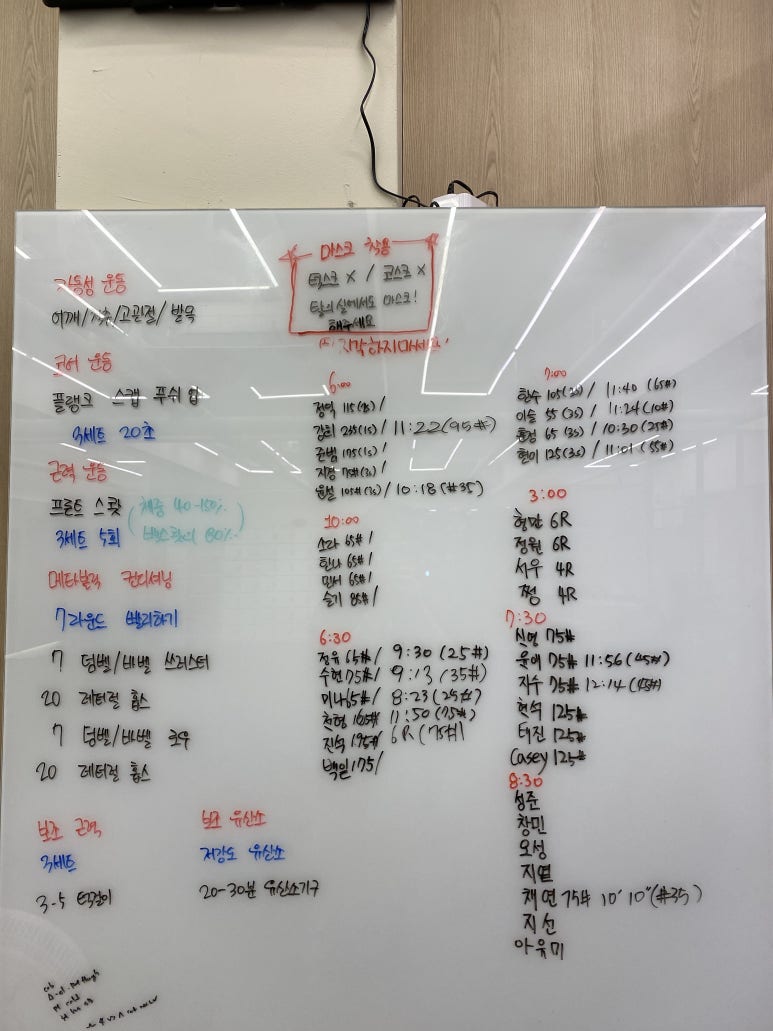 마스크 착용
턱스크 X / 코스크 X
탈의실에서도 마스크!
해주세요
지각하지마세요!
가동성 운동
어깨/척추/고관절/발목
코어 운동
플랭크 스캡 푸쉬 업
3세트 20초
근력 운동
프론트 스쾃 (체중 40-150%
3세트 5회 백스쾃의 80%)
메타볼릭 컨디셔닝
7라운드 빨리하기
7 덤벨/바벨 쓰러스터
20 레터럴 홉스
7 덤벨/바벨 로우
20 레터럴 홉스
보조 근력
3세트
3-5 턱걸이
보조 유산소
저강도 유산소
20-30분 유산소기구
6:00
정덕 115(3s)/
강희 235(1s)/ 11:22(95#)
준범 175(1s)/
지정 75#(3s)/
윤설 105#(3s)/ 10:18(#35)
10:00
소라 65#/
한나 65#/
민서 65#/
슬기 85#/
6:30
전유 65#/ 9:30 (25#)
수현 75#/ 9:13 (35#)
미나 65#/ 8:23 (25#)
천현 165# 11:50 (75#)
진석 195#/ 6R (75#)
백일 175/
7:00
한수 105(3s)/ 11:40 (65#)
이슬 55 (3s)/ 11:24 (10#)
65 (3s)/ 10:30 (25#)
현이 125(3s)/ 11:01 (55#)
3:00
형만 6R
정원 6R
서우 4R
쩡 4R
7:30
신영 75#
윤애 75# 11:56 (45#)
지수 75# 12:14 (45#)
현석 125#
태진 125#
Casey 125#
8:30
성준
창민
오성
지열
채연 75# 10'10"(#35)
지선
아유미